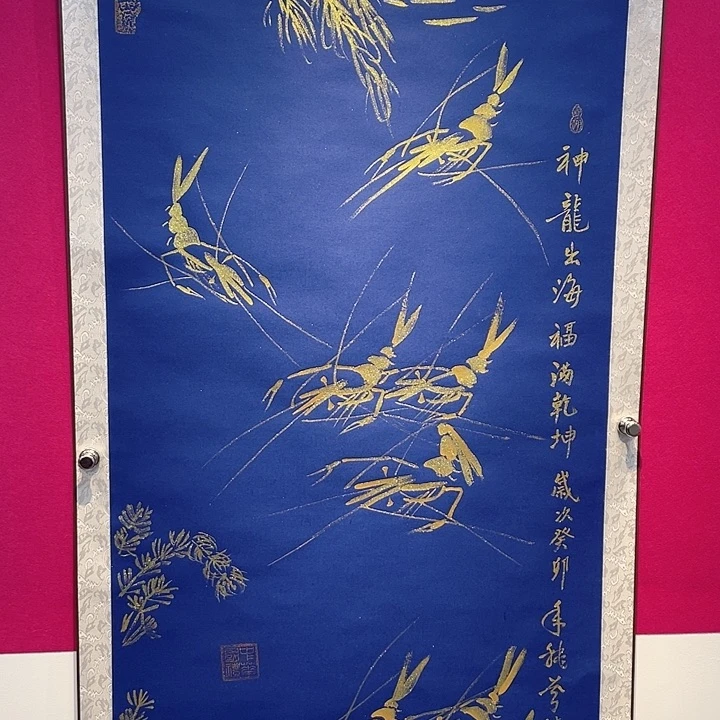 神龍出海福滿乾坤歲次癸卯年